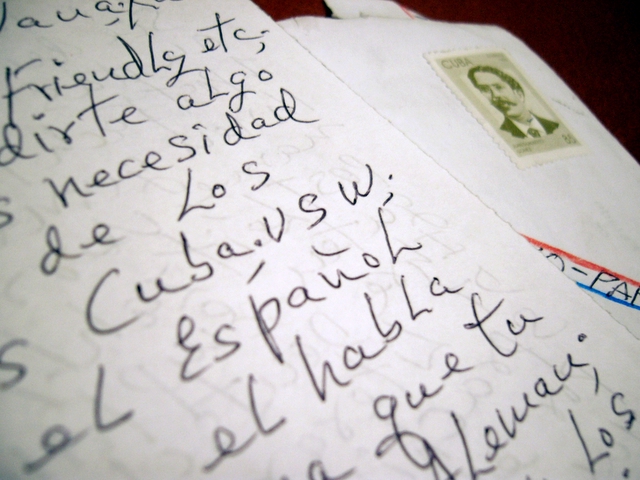 friendly etc;
dirte algo
s necesidad
de Los
Cuba.USW;
s Español
el el habla
a que tu
ALeman;
Los
CUBA
O-PAR